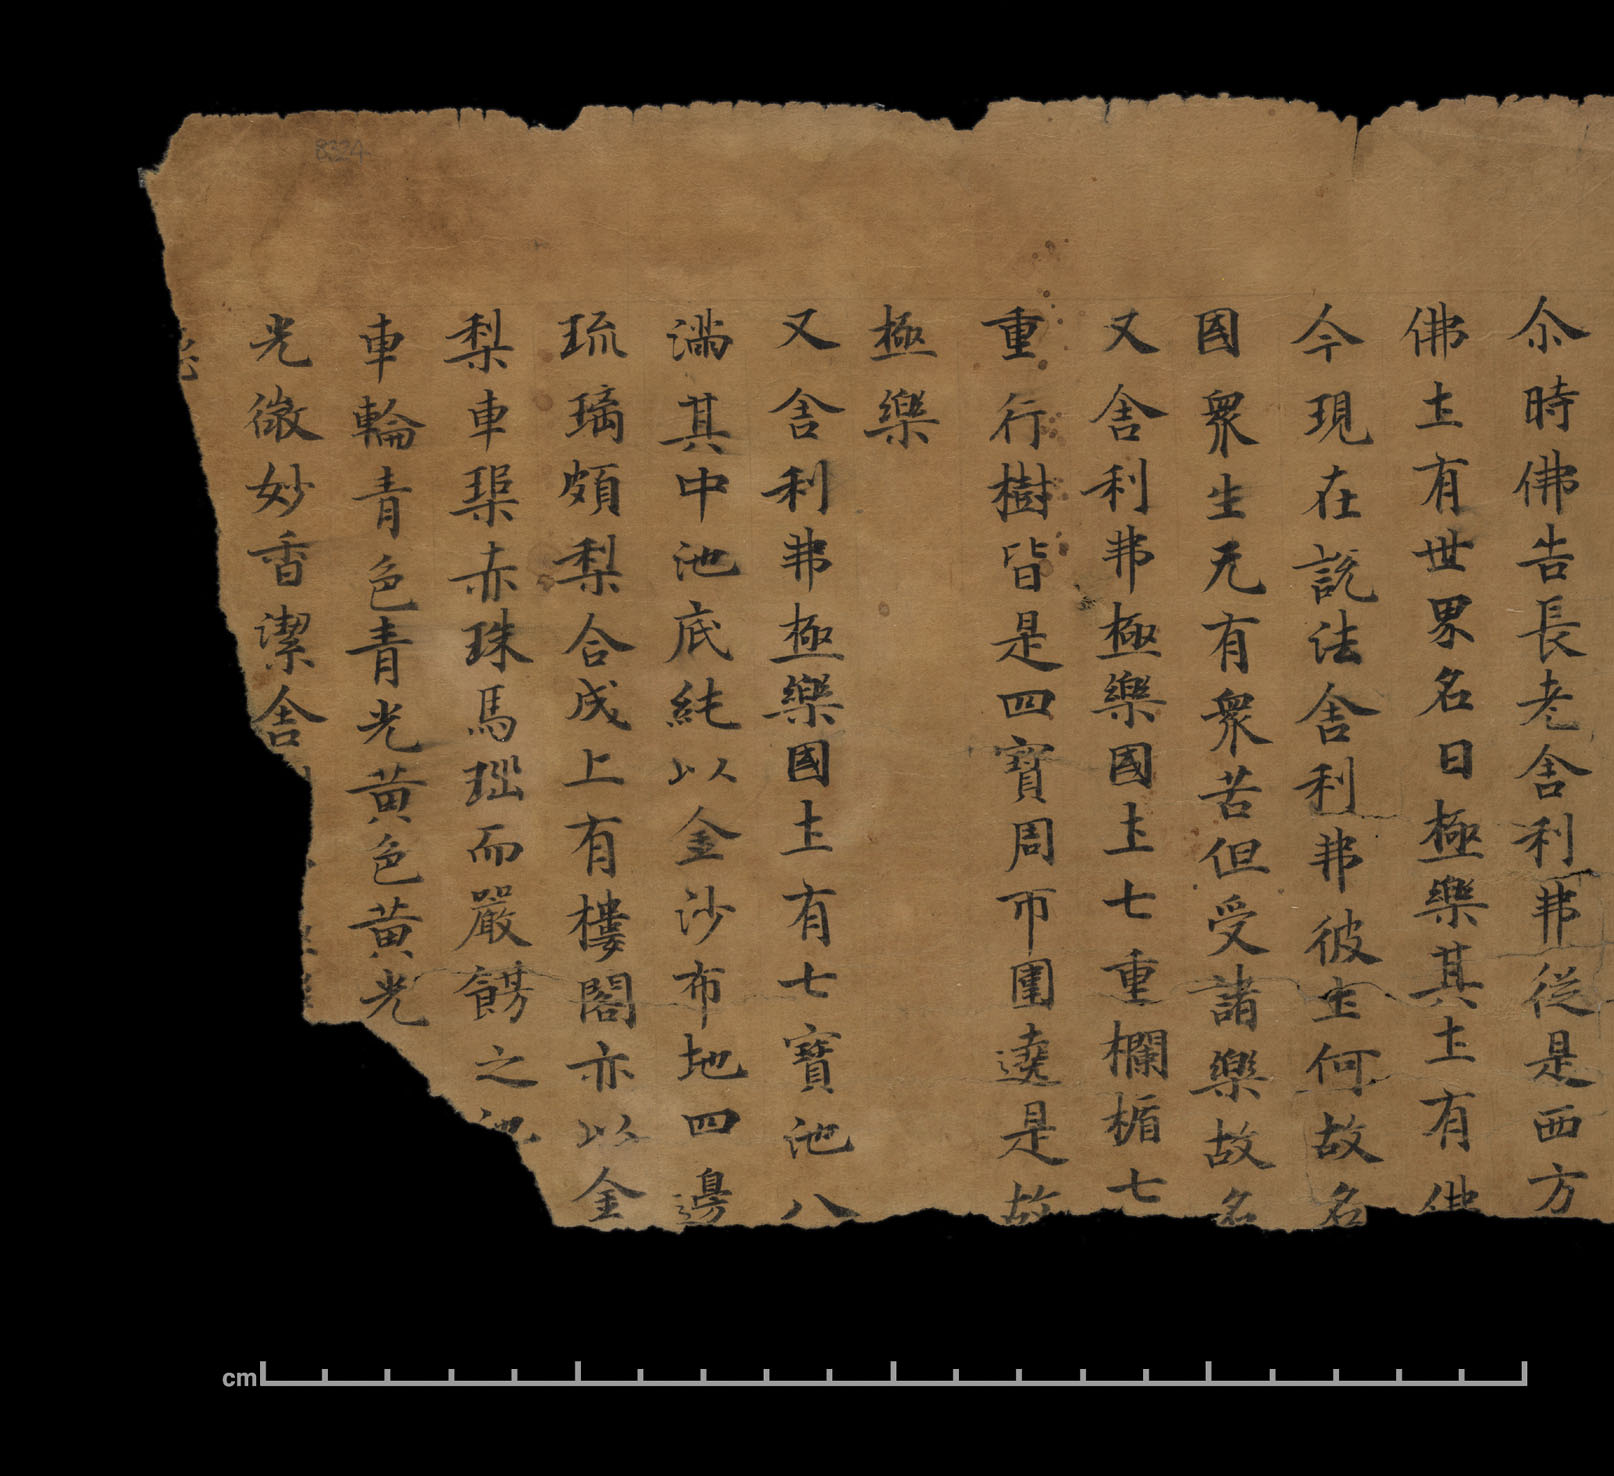 尒時佛告長老舍利弗從是西方
佛土有世界名曰極樂其土有佛
今現在說法舍利弗彼土何故名
國衆生无有衆苦但受諸樂故名
又舍利弗極樂國土七重欄楯七
重行樹皆是四寶周帀圍遶是故
極樂
又舍利弗極樂國土有七寶池八
滿其中池底純以金沙布地四邊
琉璃頗梨合成上有樓閣亦以金
梨車璖赤珠馬瑙而嚴餝之池
車輪青色青光黃色黃光
光微妙香潔舍利
8324
cm